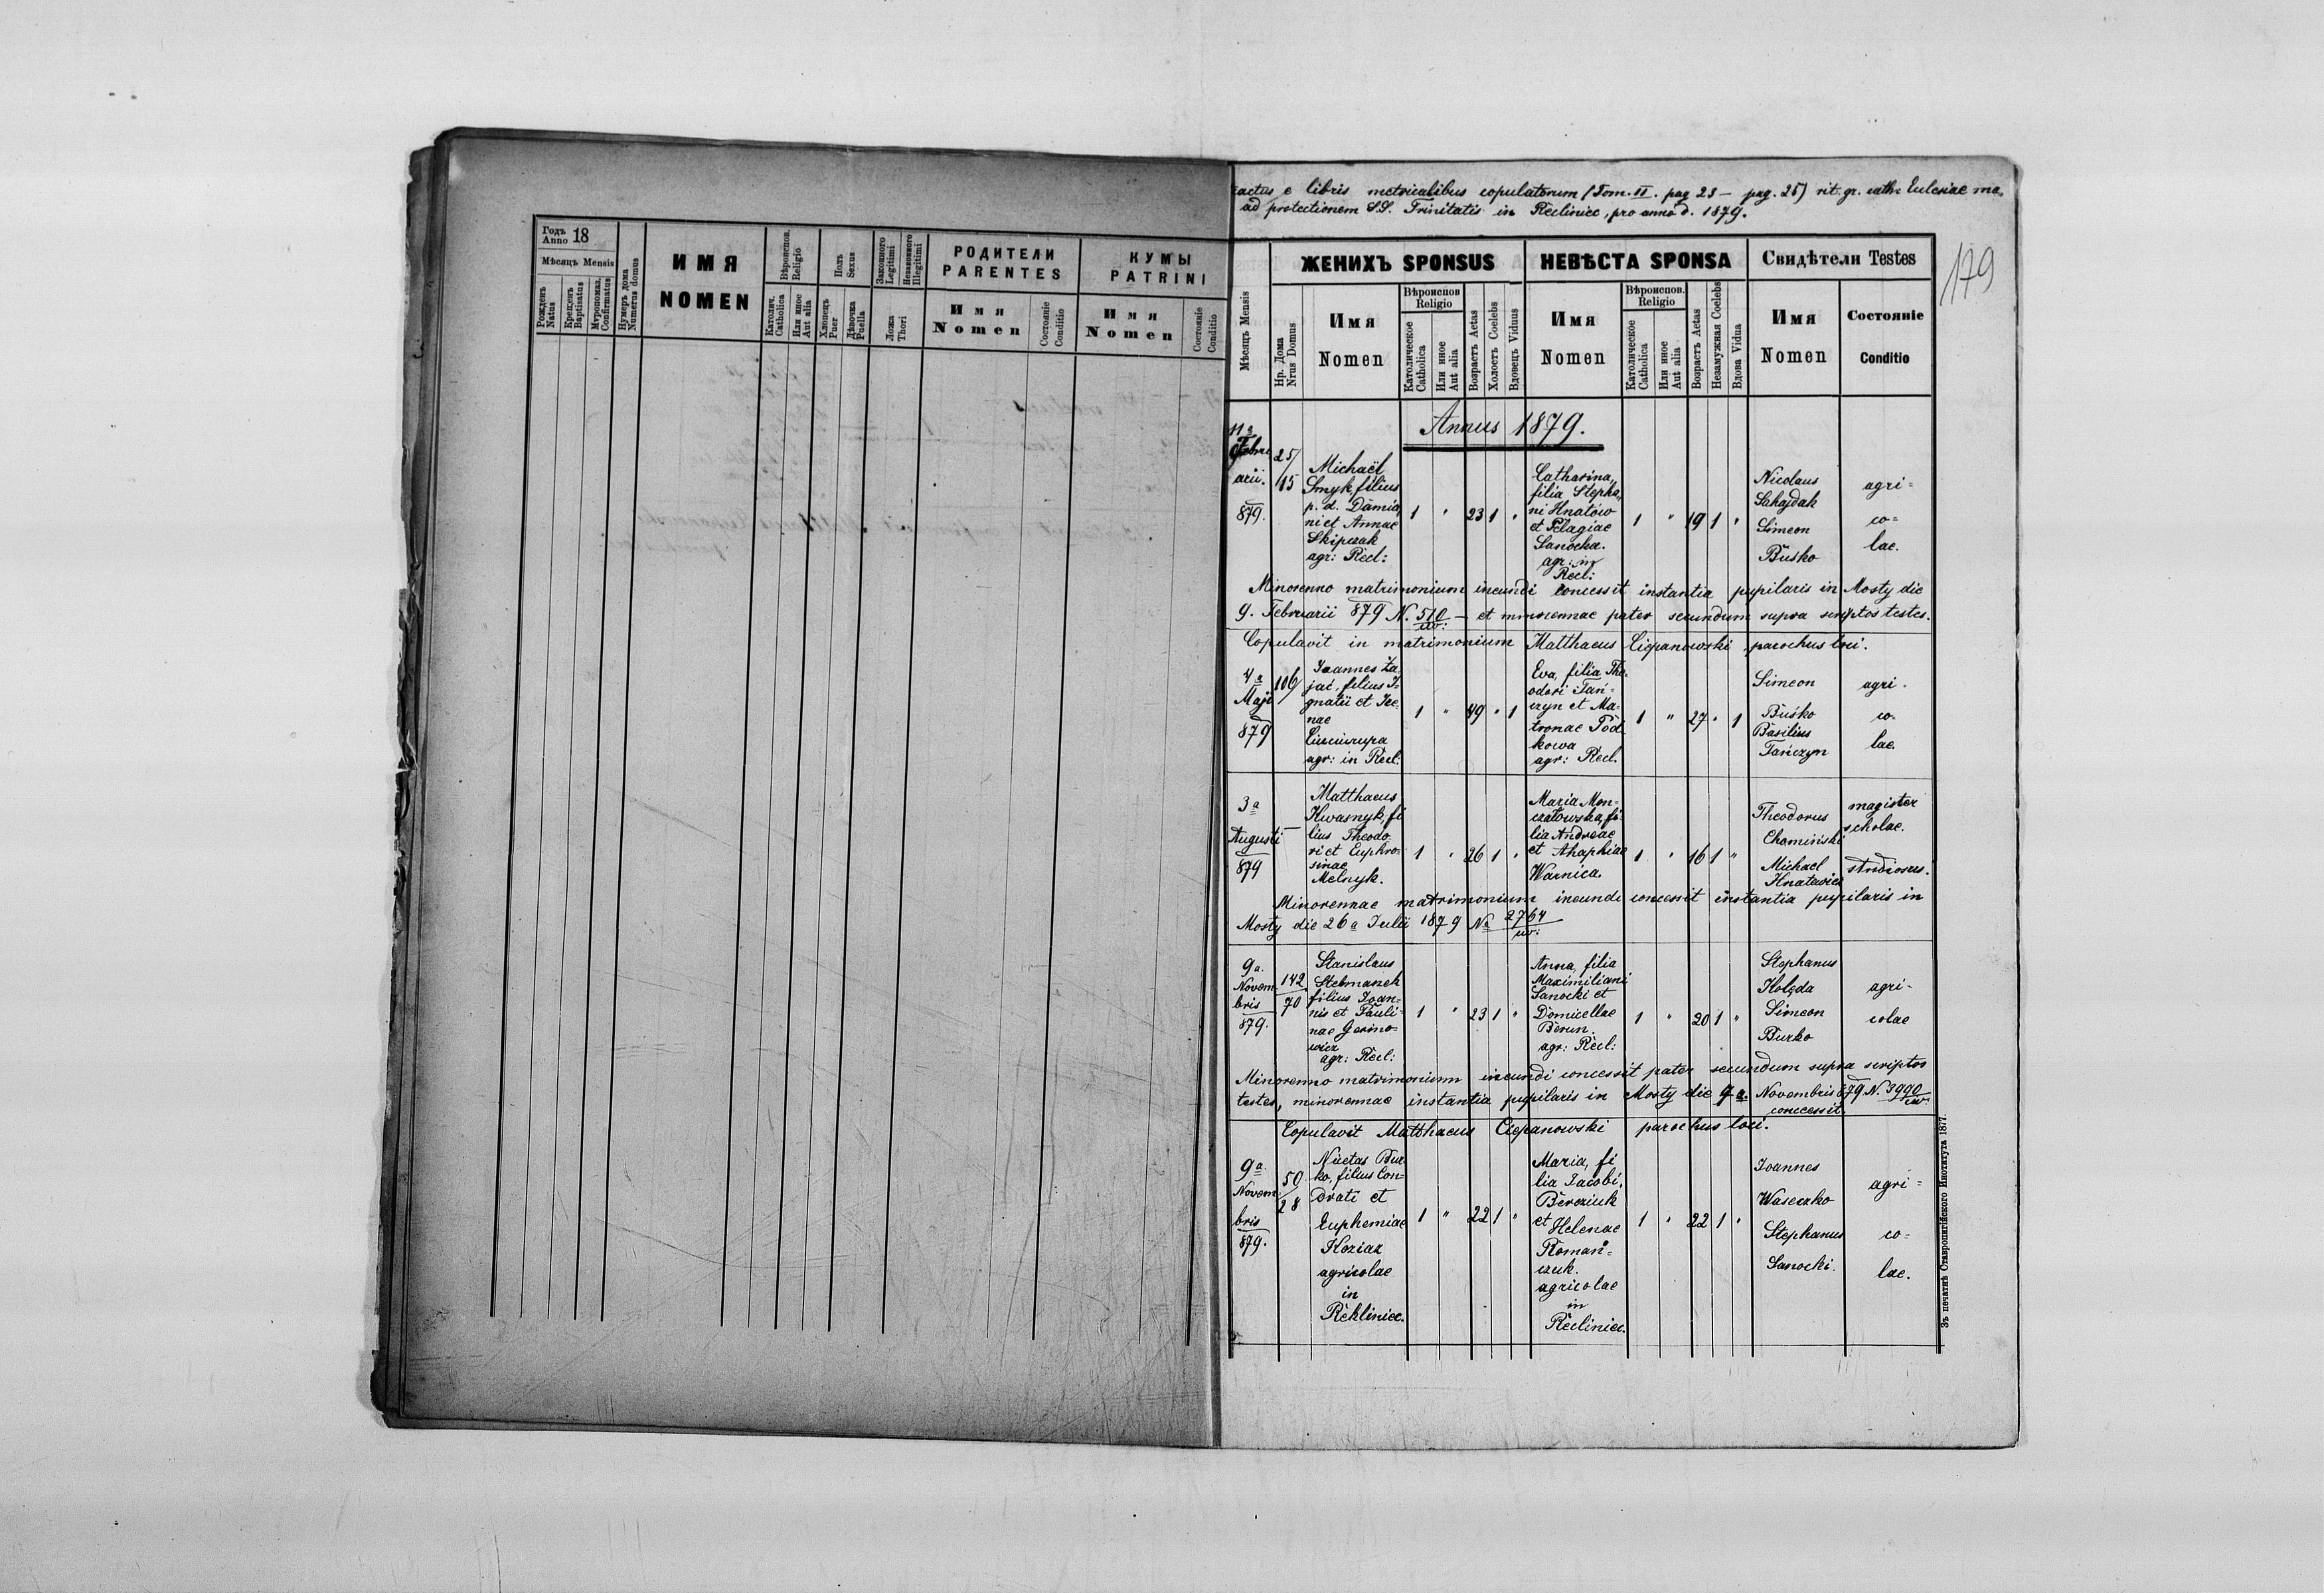 Годъ Anno 18
Мѣсяцъ Mensis
Рожденъ Natus
Крещенъ Baptisatus
Мѵропомаз. Confirmatus
Нумеръ дома Numerus domus
ИМЯ
NOMEN
Вѣроиспов. Religio
Католич. Catholica
Или иное Aut alia
Полъ Sexus
Хлопецъ Puer
Дѣвочка Puella
Законного Legitimi
Незаконного Illegitimi
Ложа Thori
РОДИТЕЛИ
PARENTES
Имя
Nomen
Состояніе Conditio
КУМЫ
PATRINI
Имя
Nomen
Состояніе Conditio
actus e libris metricalibus copulatorum (Tom. II. pag 23 — pag. 25) rit. gr. cath. Ecclesiae ma-
ad protectionem S.S. Trinitatis in Reclinice, pro anno d. 1879.
179
Мѣсяцъ Mensis
Нр. Дома Nrus Domus
ЖЕНИХЪ SPONSUS
Имя
Nomen
Вѣроиспов Religio
Католическое Catholica
Или иное Aut alia
Возрастъ Aetas
Холостъ Coelebs
Вдовецъ Viduus
НЕВѢСТА SPONSA
Имя
Nomen
Вѣроиспов. Religio
Католическое Catholica
Или иное Aut alia
Возрастъ Aetas
Незамужная Coelebs
Вдова Vidua
Свидѣтели Testes
Имя
Nomen
Состояніе
Conditio
Annus 1879.
11a
Febru
arii.
879.
25/
15
Michaël
Smyk, filius
p. d. Damia
ni et Annae
Skipczak
agr: Recl:
1 " 23 1 "
Catharina,
filia Stepha
ni Hnatow
et Pelagiae
Sanocka.
agr: in
Recl:
1 " 19 1 "
Nicolaus
Sahajdak
Simeon
Buśko
agri=
co=
lae.
Minorenno matrimonium ineundi concessit instantia pupilaris in Mosty die
9. Februarii 879 N. 510 — et minorennae pater secundum supra scriptos testes.
Copulavit in matrimonium Matthaeus Ciepanowski parochus loci.
4a
Maji
879
106/
Joannes Za
jać, filius I-
gnatii et Ire-
nae
Ciuciurupa
agr: in Recl:
1 " 49 " 1
Eva, filia The-
odori Tań-
czyn et Ma-
tronae Pod
kowa
agr: Recl.
1 " 27 " 1
Simeon
Buśko
Basilius
Tańczyn
agri-
co-
lae.
3a
Augusti
879
Matthaeus
Kwasnyk, fi
lius Theodo
ri et Euphro-
sinae
Melnyk.
1 " 26 1 "
Maria Mon-
czałowska, fi-
lia Andreae
et Ahaphiae
Warnica.
1 " 16 1 "
Theodorus
Chamiński
Michael
Hnatewicz
magister
scholae.
studiosus.
Minorennae matrimonium ineundi concessit instantia pupilaris in
Mosty die 26a Julii 1879 No 2764
9a.
Novem-
bris
879.
142
70
Stanislaus
Stelmaszek
filius Joan-
nis et Pauli-
nae Germo-
wicz
agr: Recl:
1 " 23 1 "
Anna, filia
Maximiliani
Sanocki et
Domicellae
Berun.
agr: Recl:
1 " 20 1 "
Stephanus
Kolęda
Simeon
Burko
agri-
colae
Minorenno matrimonium ineundi concessit pater secundum supra scriptos
testes, minorennae instantia pupilaris in Mosty die 9a. Novembris 879 N. 3990
concessit.
Copulavit Matthaeus Ciepanowski parochus loci.
9a.
Novem-
bris
879.
50
28
Nicetas Bur
ko, filius Con-
drati et
Euphemiae
Koziaz
agricolae
in
Reklinice.
1 " 22 1 "
Maria, fi
lia Jacobi,
Bereziuk
et Helenae
Romań-
czuk.
agricolae
in
Reclinice.
1 " 22 1 "
Joannes
Waseczko
Stephanus
Sanocki.
agri=
co=
lae.
Зъ печатнѣ Ставропигійского Института 1877.